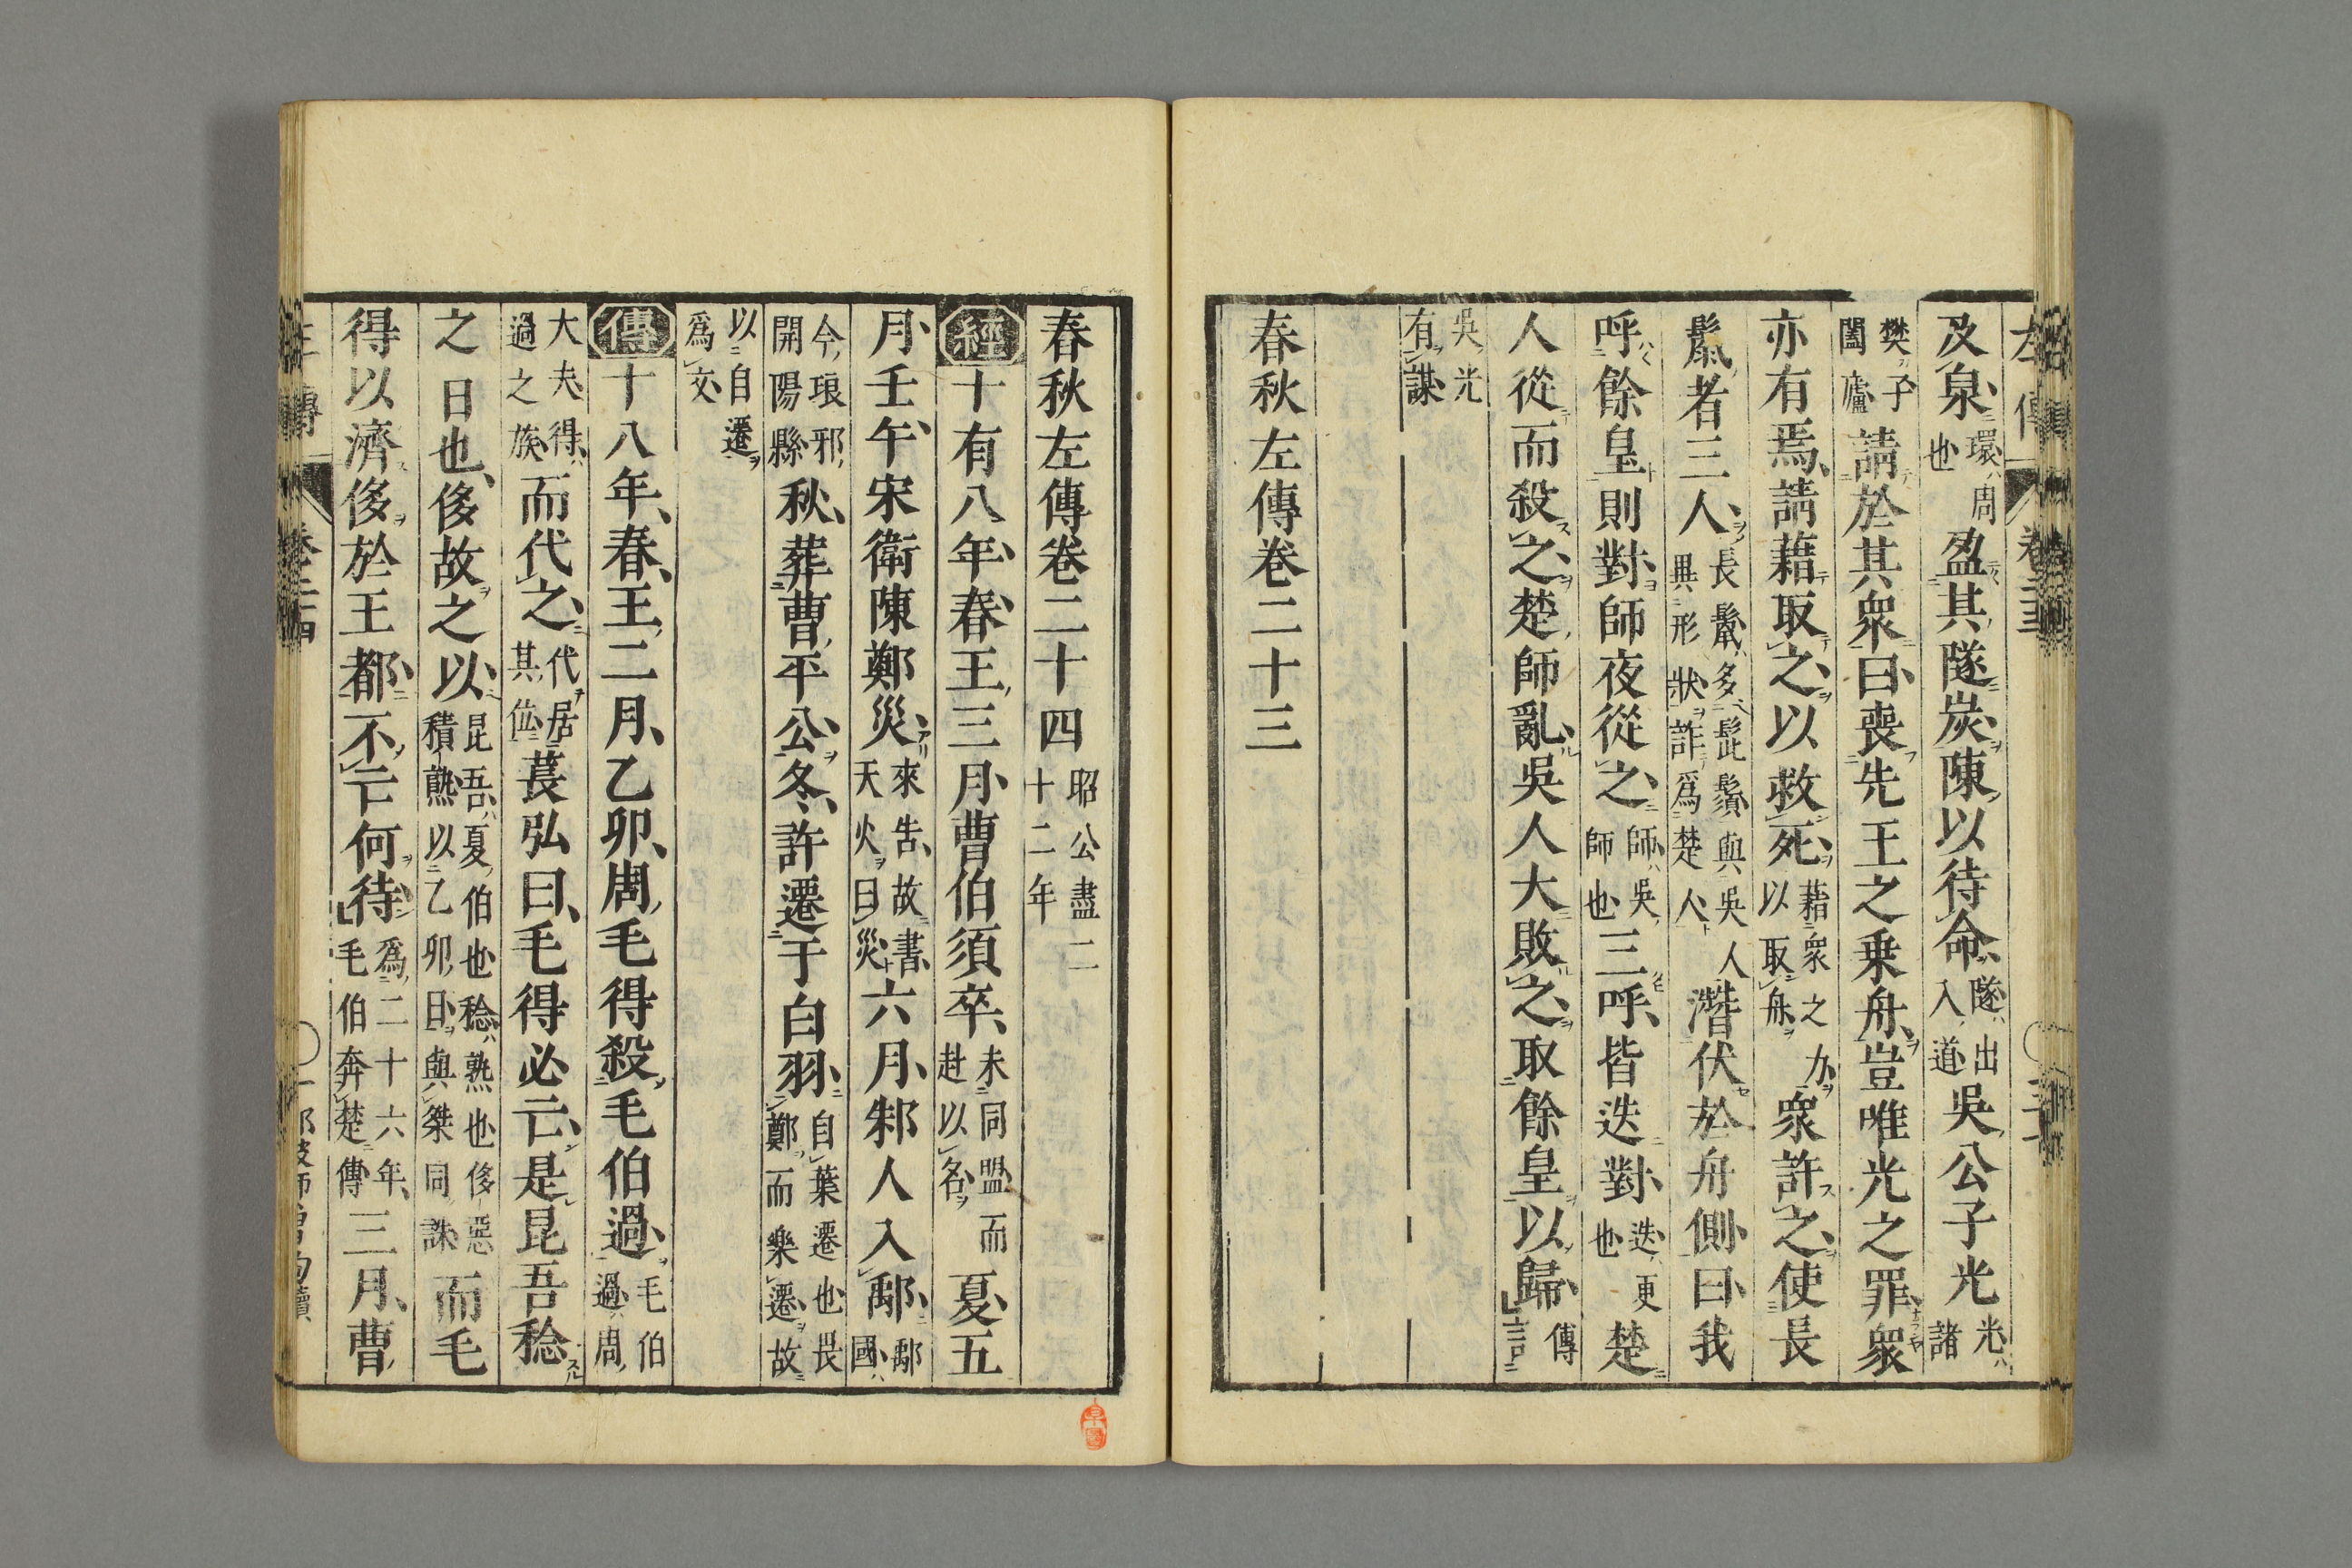 及泉環周也盈其隧炭陳以待命隧出入道吳公子光光諸
樊子闔廬請於其衆曰喪先王之乗舟豈唯光之罪衆
亦有焉請藉取之以救死藉衆之力以取舟衆許之使長
鬛者三人長鬛多髭鬚與吳人異形狀詐爲楚人潛伏於舟側曰我
呼餘皇則對師夜從之師吳師也三呼皆迭對迭更也楚
人從而殺之楚師亂吳人大敗之取餘皇以歸傳言
吳光有謀
春秋左傳卷二十三
春秋左傳卷二十四昭公盡二十二年
經十有八年春王三月曹伯須卒未同盟而赴以名夏五
月壬午宋衛陳鄭災來告故書天火曰災六月邾人入鄅鄅國
今琅邪開陽縣秋葬曹平公冬許遷于白羽自葉遷也畏鄭而樂遷故
以自遷爲文
傳十八年春王二月乙卯周毛得殺毛伯過毛伯過周
大夫得過之族而代之代居其位萇弘曰毛得必亡是昆吾稔
之日也侈故之以昆吾夏伯也稔熟也侈惡積熟以乙卯日與桀同誅而毛
得以濟侈於王都不亡何待爲二十六年毛伯奔楚傳三月曹